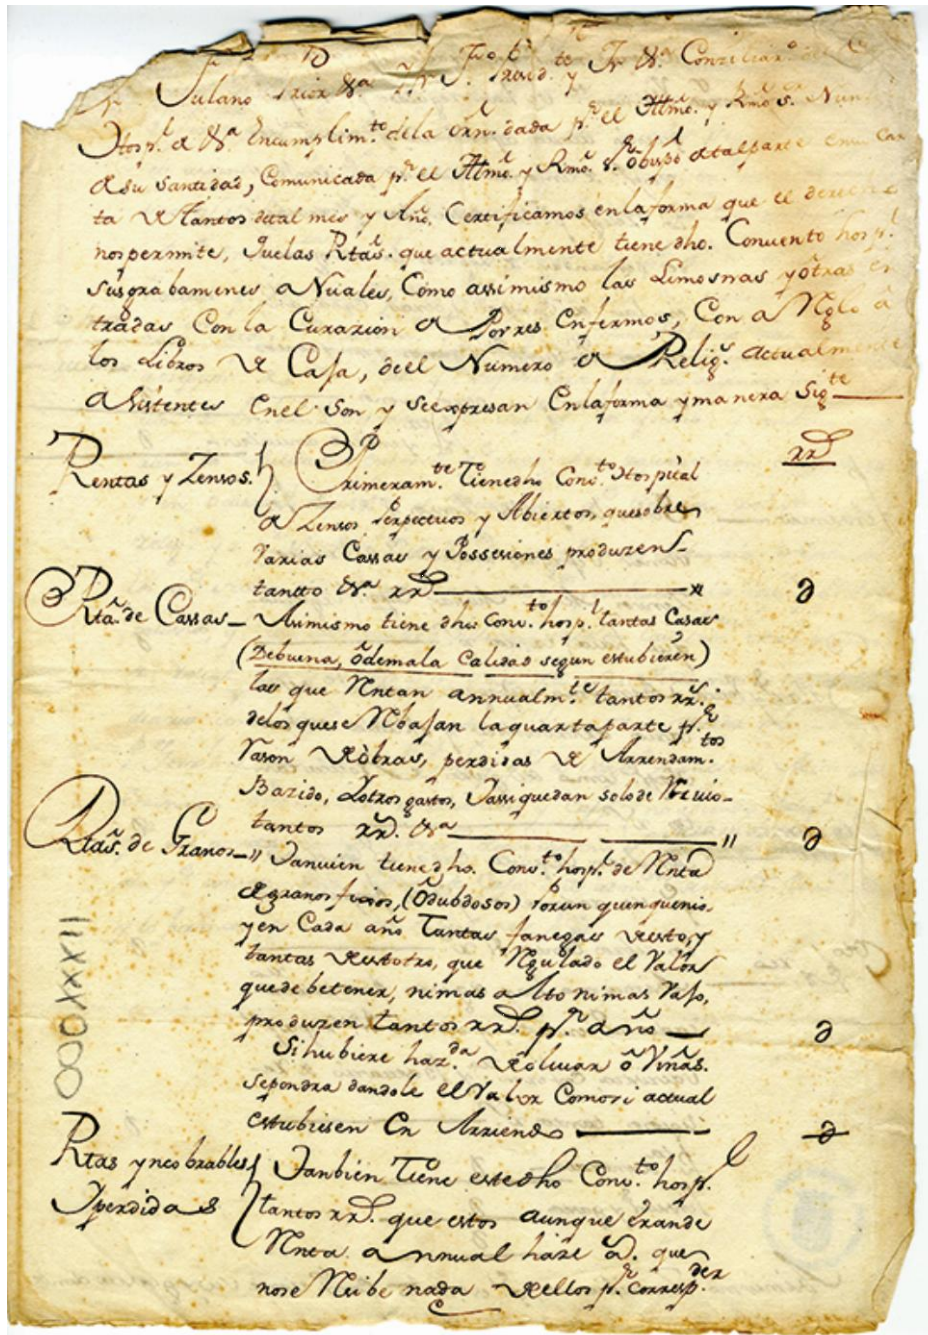 Fr. Fulano Prior &ª Fr. Fº. Presidte. y Fr. &ª. Conziliarº. de
Hospl. de &ª En cumplimto. de la Orñ. dada pr. el Illmo. y Rmo. Sr. Nun
de su santidad, Comunicada pr. el Illmo. y Rmo. Sr. Obispo de tal parte en su Car
ta de tantos de tal mes y Año. Certificamos en la forma que el derecho
nos permite, Que las Rtas. que actualmente tiene dho. Convento hospl.
sus grabamenes aNuales, Como assimismo las Limosnas y ótras en
tradas Con la Curazion de Povres Enfermos, Con aRreglo â
los Libros de Casa, de el Numero de Religs. actualmente
aSistentes en el Son y se expresan En la forma y manera Sigte.
Rentas y Zensos. Primeramte. Tiene dho Convto. Hospital rrs.
de Zensos Perpectuos y Abiertos, que sobre
Varias Cassas y Possesiones produzen
tantto &ª rrs. — " ∂
Rtas. de Cassas — Assimismo tiene dho. Convto. hospl. tantas Casas
(De buena, ô de mala Calidad segun estubieren)
las que Rentan annualmte. tantos rrs.
de los que se Rebasan la quarta parte pr.
Rason de òbras, perdidas de Arrendamtos.
Bazido, Y otros gastos, Y assi quedan solo de
tantos rrs. &ª — " ∂
Rtas. de Granos — " Tanvien tiene dho. Convto. hospl. de Renta
de granos fixos, (Ô dubdosos) Por un quinquenio,
y en Cada año Tantas fanegas de esto, y
tantas de estotro, que Regulado el Valor
que debe tener, ni mas alto ni mas Vaso,
produzen tantos rrs. pr. año — ∂
Si hubiere hazda. de olivar ô Viñas.
se pondra dandole el Valor Como si actual
estubiesen En Arriendo — ∂
Rtas yncobrables Tanbien Tiene este dho Convto. hospl.
Y perdidas tantos rrs. que estos aunque Eran de
Renta annual haze as. que
no se Reibe nada de ellos pr. Correspder.
000XXXII